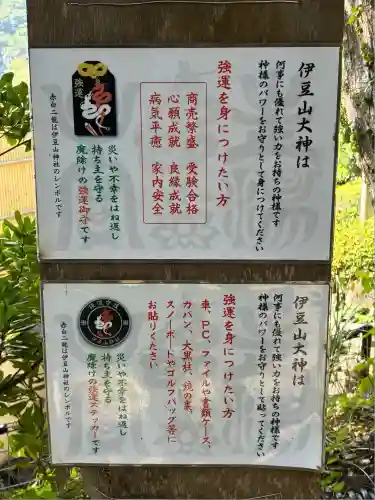 伊豆山大神は
何事にも優れて強い力をお持ちの
神様のパワーをお守りとして身につけてください
強運を身につけたい方
商売繁盛 受験合格
心願成就 良縁成就
病気平癒 家内安全
強運
災いや不幸をはね返し
持ち主を守る
魔除けの強運御守です
赤白二龍は伊豆山神社のシンボルです
伊豆山大神は
何事にも優れて強い力をお持ちの
神様のパワーをお守りとして貼ってください
強運を身につけたい方
車、ＰＣ、ファイルや書類ケース、
カバン、大黒柱、鏡の裏、
スノーボードやゴルフバッグ等に
お貼りください
災いや不幸をはね返し
持ち主を守る
魔除けの強運ステッカーです
赤白二龍は伊豆山神社のシンボルです